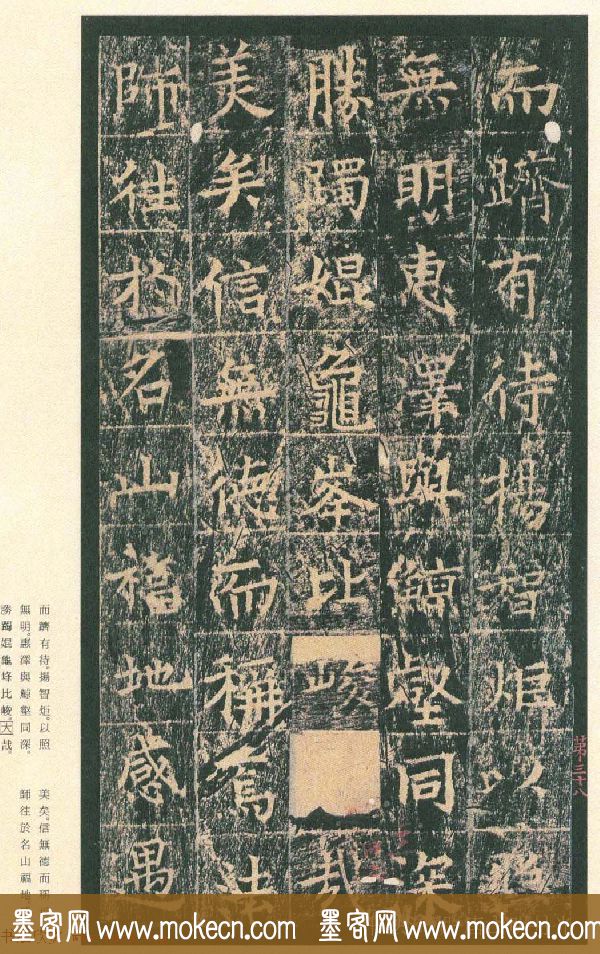 而躋有待揚智炬以照
無明惠澤與鯨壑同深
勝躅媲龜峯比峻哉
美矣信無德而稱焉法
師往於名山福地感遇
第三十八
而躋有待。揚智炬。以照
無明。惠澤與鯨壑同深。
勝躅媲龜峰比峻。大哉。
美矣。信無德而
師往於名山福地
墨客网 www.mokecn.com 墨客网 www.mokecn.com